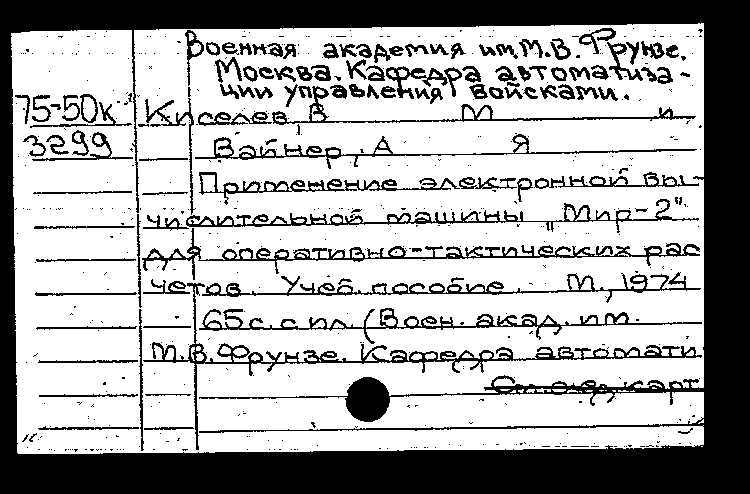 Военная академия им. М.В. Фрунзе.
Москва. Кафедра автоматиза-
ции управления войсками.
75-50к Киселев, В М и
3299 Вайнер, А Я
Применение электронной вы-
числительной машины "Мир-2"
для оперативно-тактических рас
четов. Учеб. пособие. М., 1974
65 с. с ил. (Воен. акад. им.
М.В. Фрунзе. Кафедра автомати
См. след. карт